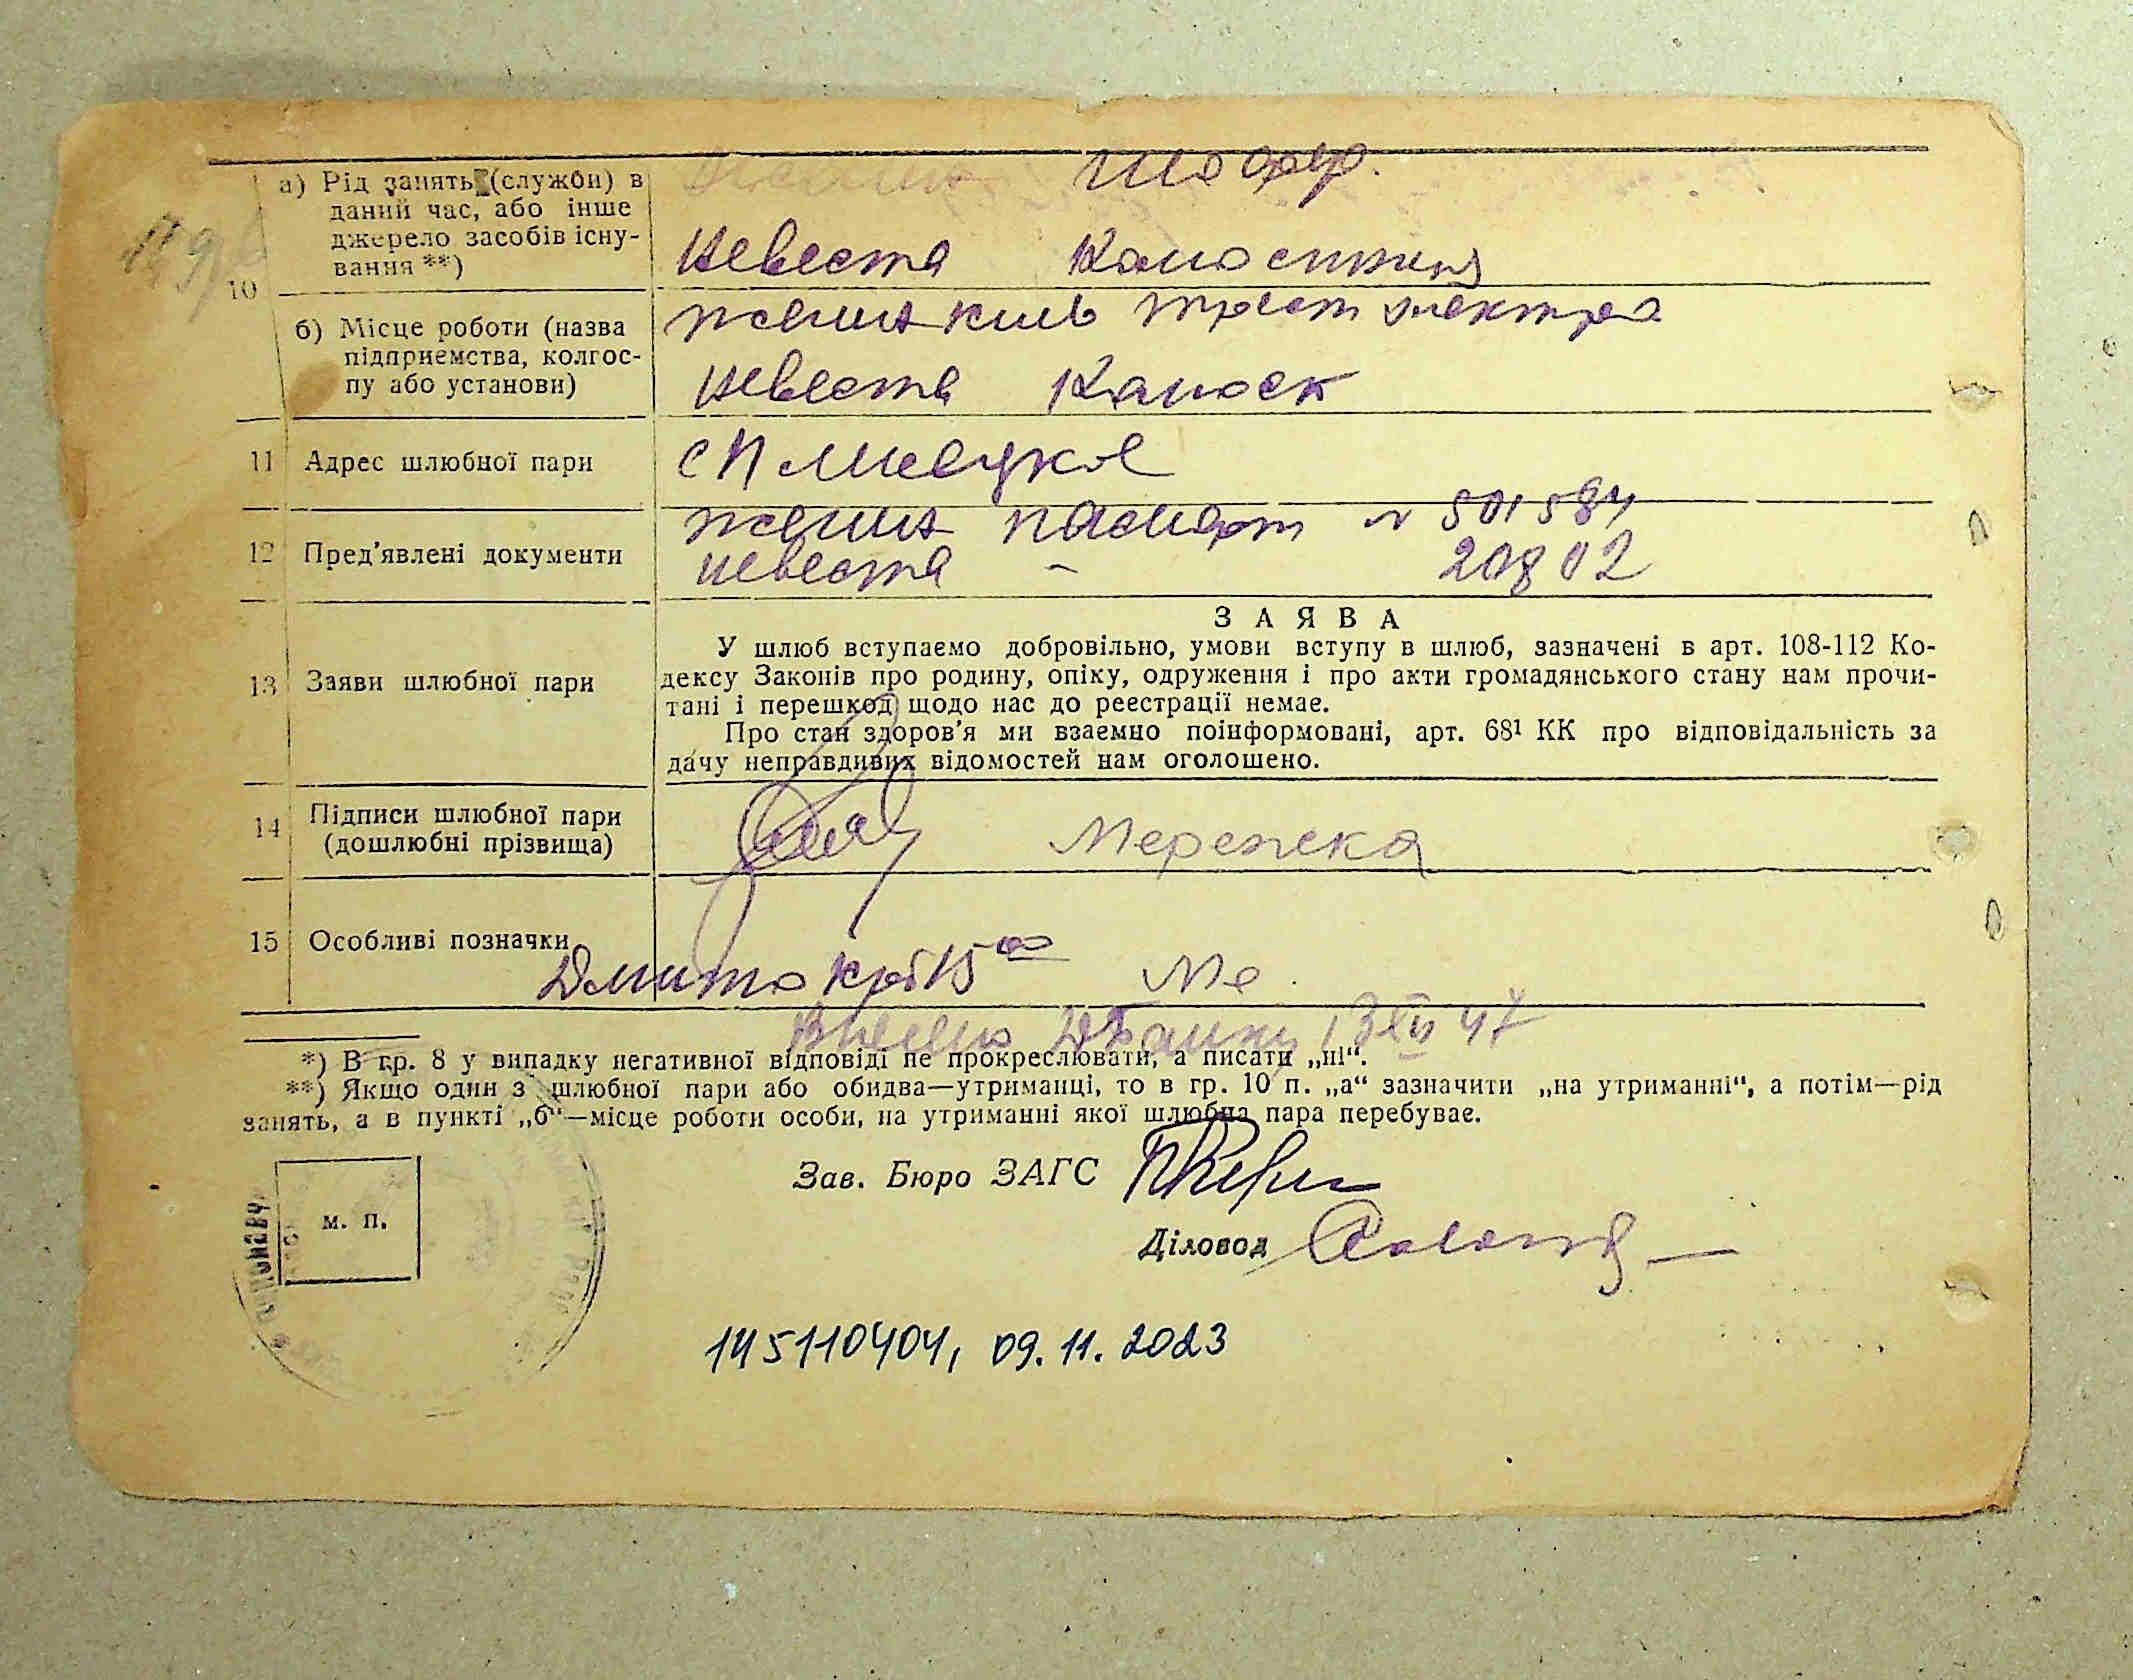 а) Рід занять (служби) в
даний час, або інше
джерело засобів існу-
вання **)
шофер.
невеста
10
б) Місце роботи (назва
підприемства, колгос-
пу або установи)
жених трест электро
невеста
11 Адрес шлюбної пари
с
12 Пред'явлені документи
жених паспорт № 501584
невеста - 20802
13 Заяви шлюбної пари
ЗАЯВА
У шлюб вступаємо добровільно, умови вступу в шлюб, зазначені в арт. 108-112 Ко-
дексу Законів про родину, опіку, одруження і про акти громадянського стану нам прочи-
тані і перешкод щодо нас до реестрації немає.
Про стан здоров'я ми взаємно поінформовані, арт. 68¹ КК про відповідальність за
дачу неправдивих відомостей нам оголошено.
14 Підписи шлюбної пари
(дошлюбні прізвища)
Мережка
15 Особливі позначки
крб 15 00
13 XII 47
*) В гр. 8 у випадку негативної відповіді не прокреслювати, а писати „ні“.
**) Якщо один з шлюбної пари або обидва—утриманці, то в гр. 10 п. „а“ зазначити „на утриманні“, а потім—рід
занять, а в пункті „б“—місце роботи особи, на утриманні якої шлюбна пара перебуває.
Зав. Бюро ЗАГС
м. п.
Діловод
145110404, 09.11.2023